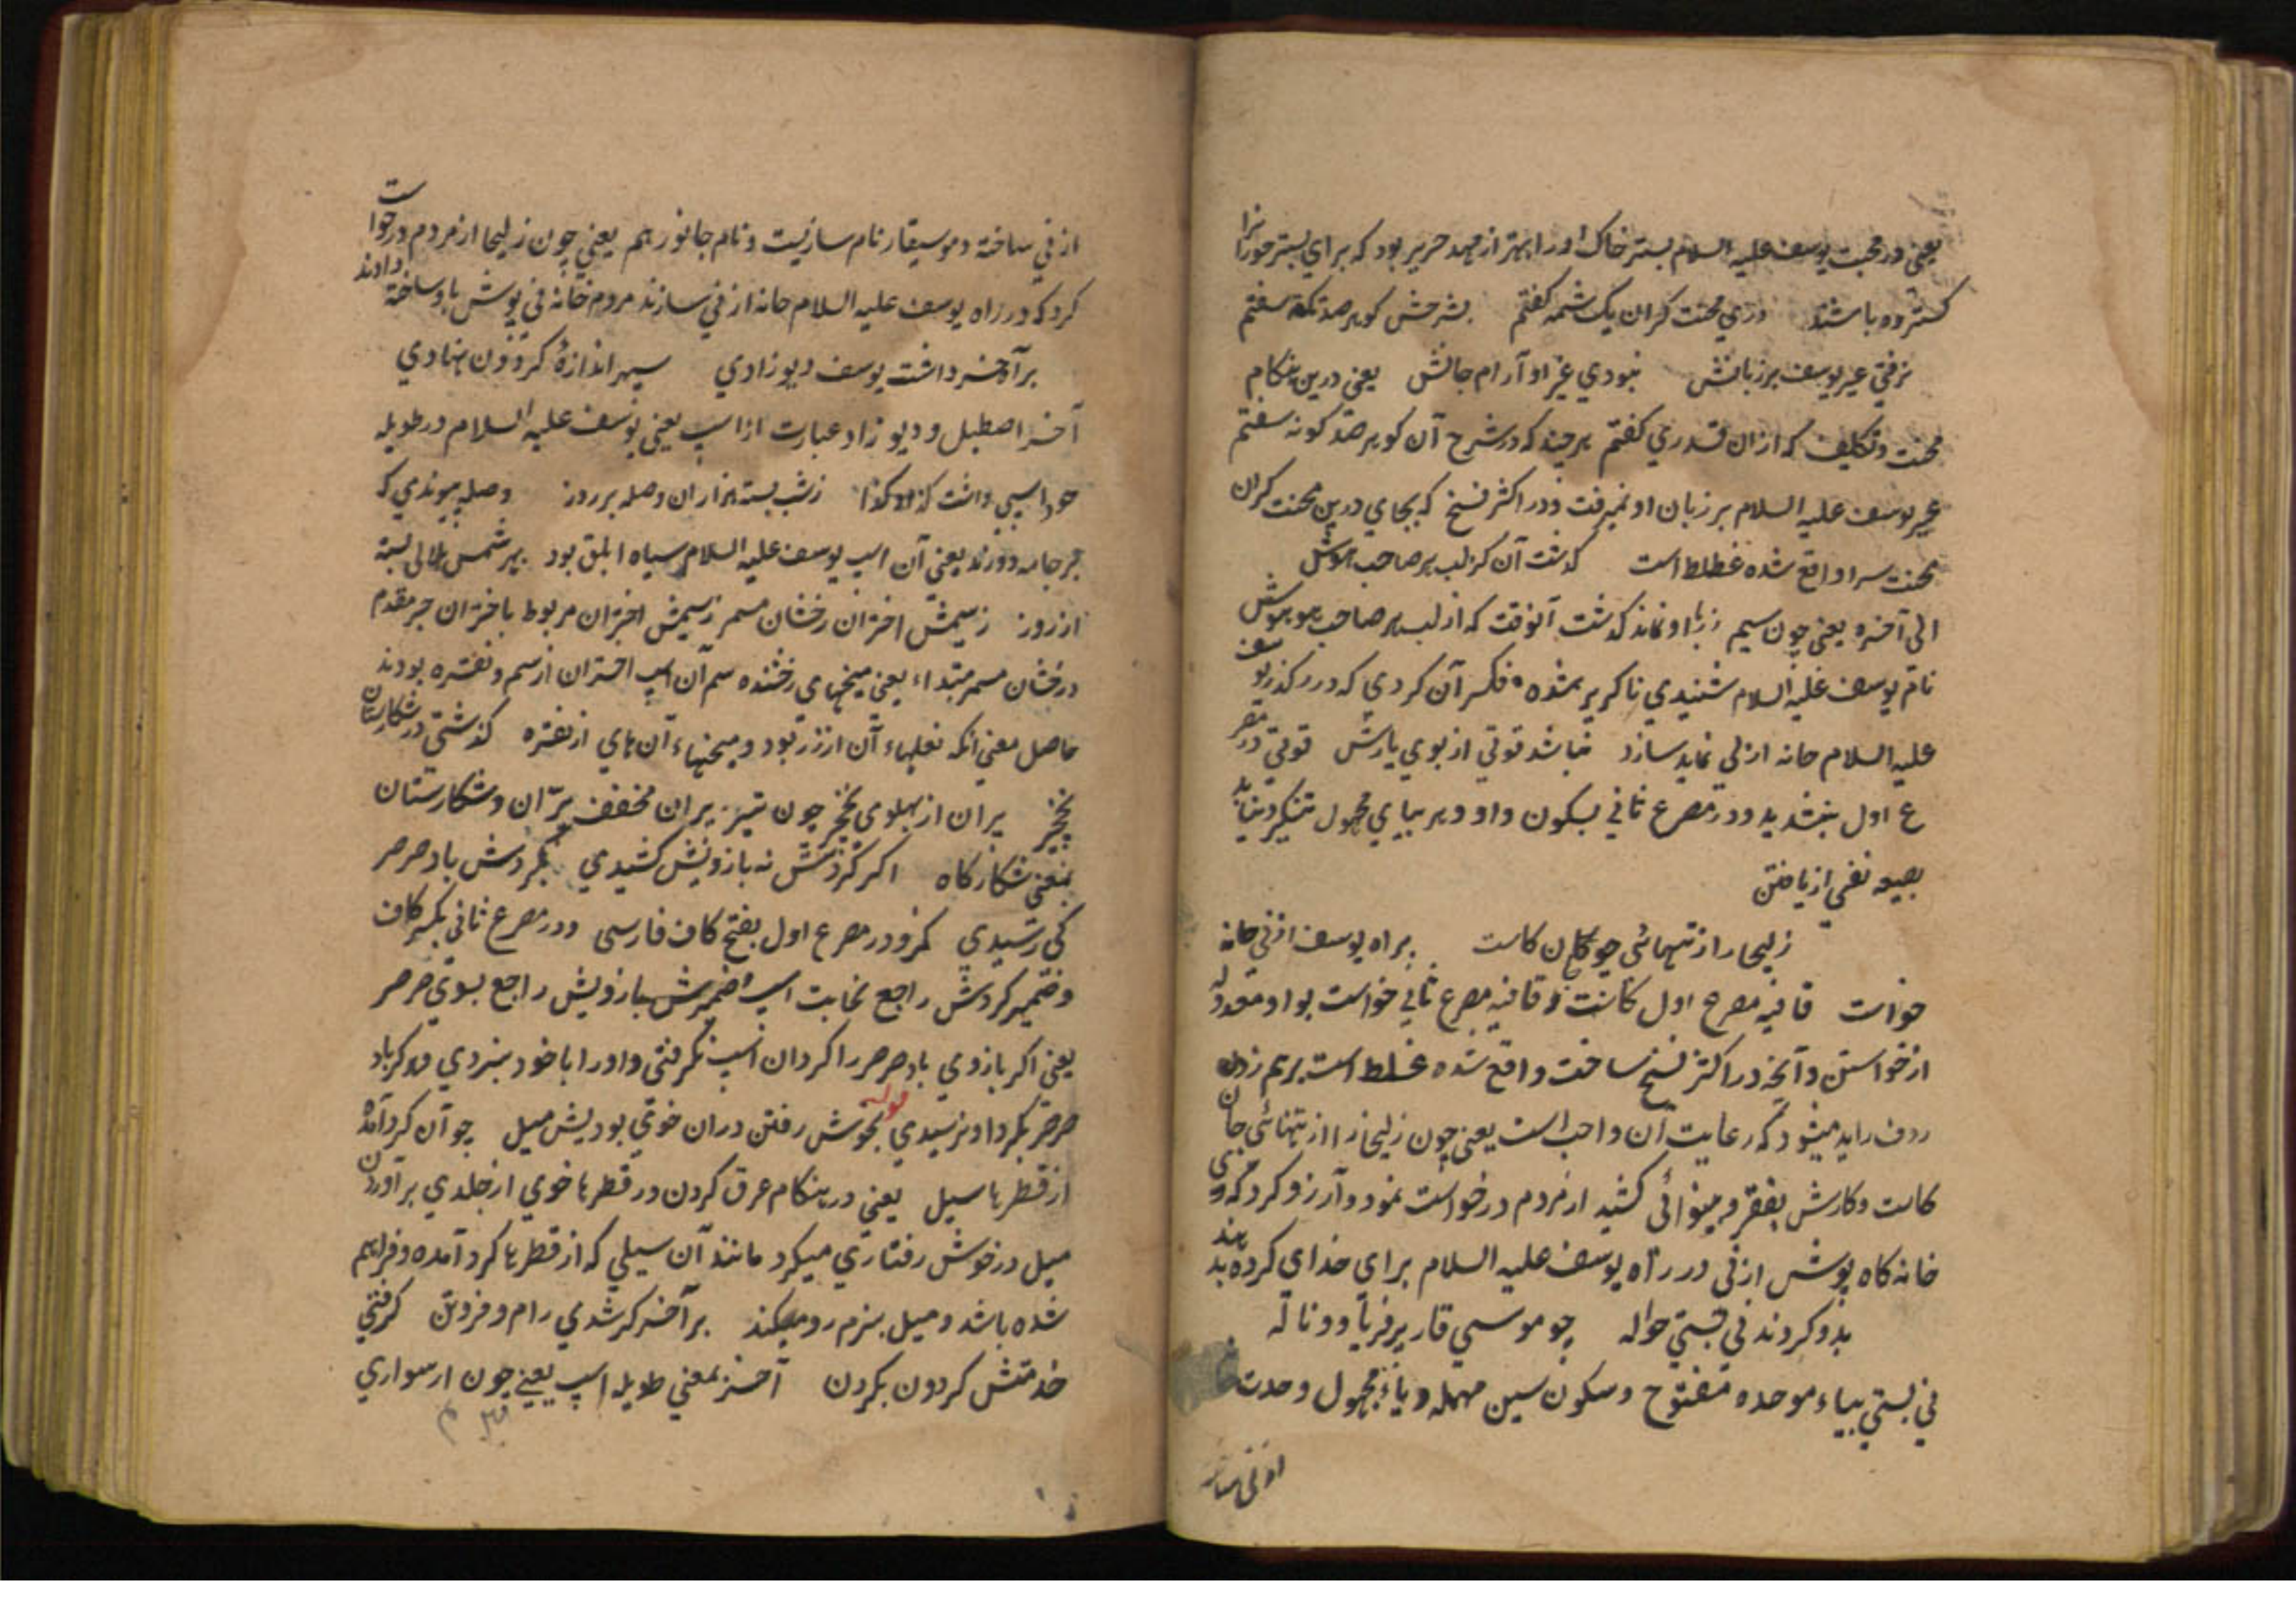 یعنی در محبت یوسف علیه السلام بستر خاک او را بهتر از مهد حریر بود که برای بستر حورا نرا
کسترده باشند درین محنت کران یک شمه کفتم بشرحش کوهر صد نکته سفتم
نرفتی غیر یوسف بر زبانش نبودی غیر او آرام جانش یعنی درین هنکام
محنت و تکلیف که ازان قدری کفتم هر چند که در شرح آن کوهر صد کونه سفتم
غیر یوسف علیه السلام بر زبان او نمیرفت و در اکثر نسخ که بجای درین محنت کران
محنت سرا واقع شده غلط است کذشت آن کز لب هر صاحب هوش
الی آخره یعنی چون سیم زر با او نماند کذشت آنوقت که از لب هر صاحب هوش
نام یوسف علیه السلام شنیدی تا کریر شده فکر آن کردی که در رکذر یوسف
علیه السلام خانه از نی نماید سازد نباشد قوتی از بوی یارش قوتی در مصر
ع اول بتشدید و در مصرع ثانی بسکون واو و هر بیای مجهول تنکیر و نیابد
بصیغه نفی از یافتن
زلیخا را ز تنهائی چو جان کاست براه یوسف از نی خانه
خواست قافیه مصرع اول کاست و قافیه مصرع ثانی خواست بواو معدوله
از خواستن و آنچه در اکثر نسخ ساخت واقع شده غلط است بر هم زدن
ردف زاید میشود که رعایت آن واجب است یعنی چون زلیخا را از تنهائی جان
کاست و کارش بفقر و بینوائی کشید از مردم درخواست نمود و آرزو کرد که وی
خانه کاه پوش از نی در راه یوسف علیه السلام برای خدای کرده بدهند
بدو کردند نی بستی حواله چو موسیقار پر فریاد و ناله
نی بستی بباء موحده مفتوح و سکون سین مهمله و یاء مجهول وحدت خانه
از نی ساخته
از نی ساخته و موسیقار نام سازیست و نام جانور هم یعنی چون زلیخا از مردم درخواست
کرد که در راه یوسف علیه السلام خانه از نی سازند مردم خانه نی پوش باو ساخته دادند
بر آخر داشت یوسف دیو زادی سپهر اندازهٔ کردون نهادی
آخر اصطبل و دیو زاد عبارت از اسپ یعنی یوسف علیه السلام در طویله
خود اسپی داشت کذا و کذا ز شب بسته هزاران وصله بر روز وصله پیوندی که
بر جامه دوزند یعنی آن اسپ یوسف علیه السلام سیاه ابلق بود بهر شمس هلالی بسته
از روز ز سیمش اختران رخشان مسمر ز سیمش اختران مربوط باختران خبر مقدم
رخشان مسمر مبتداء یعنی میخهای رخشنده سم آن اسپ اختران از سم و نقره بودند
حاصل معنی انکه نعلهاء آن از زر بود و میخهاء آن های از نقره کذشتی در شکارستان
نخچیر پران از پهلوی نخچیر چون تیر پران مخفف پرّان و شکارستان
بمعنی شکارکاه اکر کردش نه بازویش کشیدی بکردش باد صرصر
کی رسیدی کرد در مصرع اول بفتح کاف فارسی و در مصرع ثانی بکسر کاف
و ضمیر کردش راجع بجانب اسپ و ضمیرش ببازویش راجع بسوی صرصر
یعنی اکر بازوی باد صرصر را کردان اسپ نکرفتی و او را با خود نبردی هرکز باد
صرصر بکرد او نرسیدی قوله بخوش رفتن دران خوی بودیش میل چو آن کرد آمده
از قطرها سیل یعنی در هنکام عرق کردن در قطرها خوی از جلدی بر آوردن
میل در خوش رفتاری میکرد مانند آن سیلی که از قطرها کرد آمده و فراهم
شده باشد و میل بنرم رو میکند بر آخر کر شدی رام و فروتن کرفتی
خدمتش کردون بکردن آخر بمعنی طویله اسپ یعنی چون از سواری